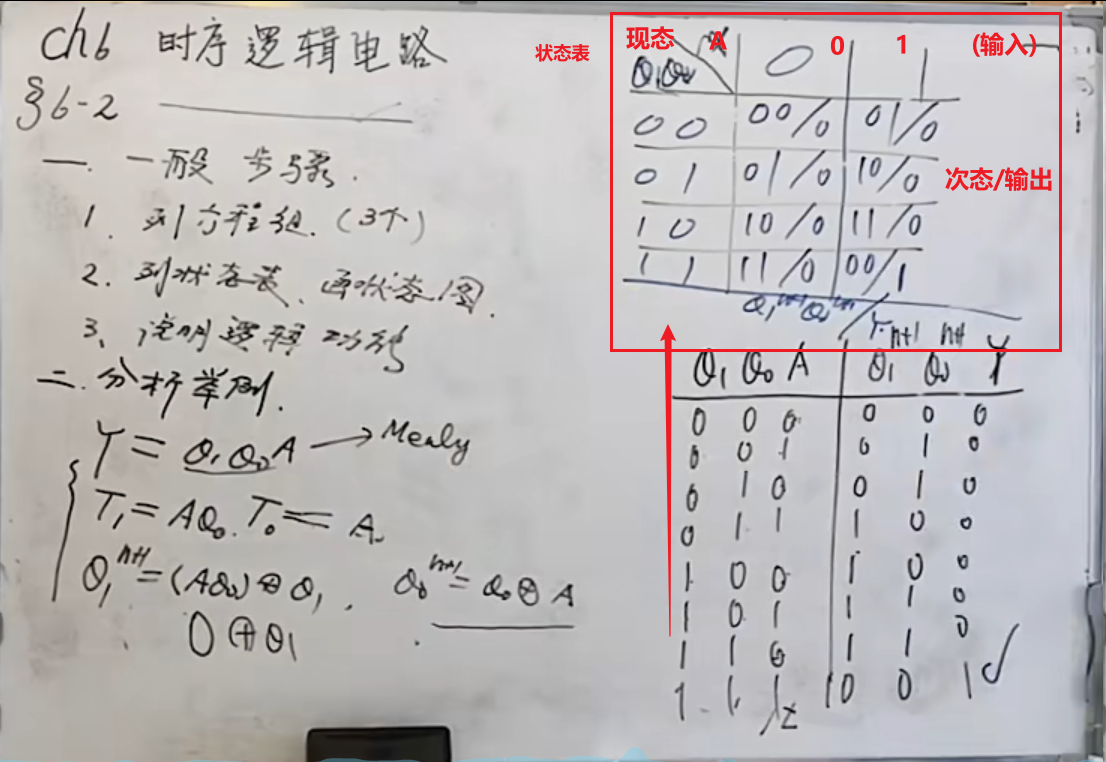 ch6 时序逻辑电路
§6-2
一. 一般步骤.
1. 列方程组. (3个)
2. 列状态表、画状态图.
3、说明逻辑功能
二. 分析举例.
Y = Q₁Q₀A → Mealy
T₁ = AQ₀. T₀ = A.
Q₁ⁿ⁺¹ = (AQ₀) ⊕ Q₁, Q₀ⁿ⁺¹ = Q₀ ⊕ A
0 ⊕ Q₁
状态表
现态 A 0 1 (输入)
Q₁Q₀ 0 1
0 0 00/0 01/0
0 1 01/0 10/0
次态/输出
1 0 10/0 11/0
1 1 11/0 00/1
Q₁ⁿ⁺¹Q₀ⁿ⁺¹/Y
Q₁ Q₀ A Q₁ⁿ⁺¹ Q₀ⁿ⁺¹ Y
0 0 0 0 0 0
0 0 1 0 1 0
0 1 0 0 1 0
0 1 1 1 0 0
1 0 0 1 0 0
1 0 1 1 1 0
1 1 0 1 1 0
1 1 1 0 0 1